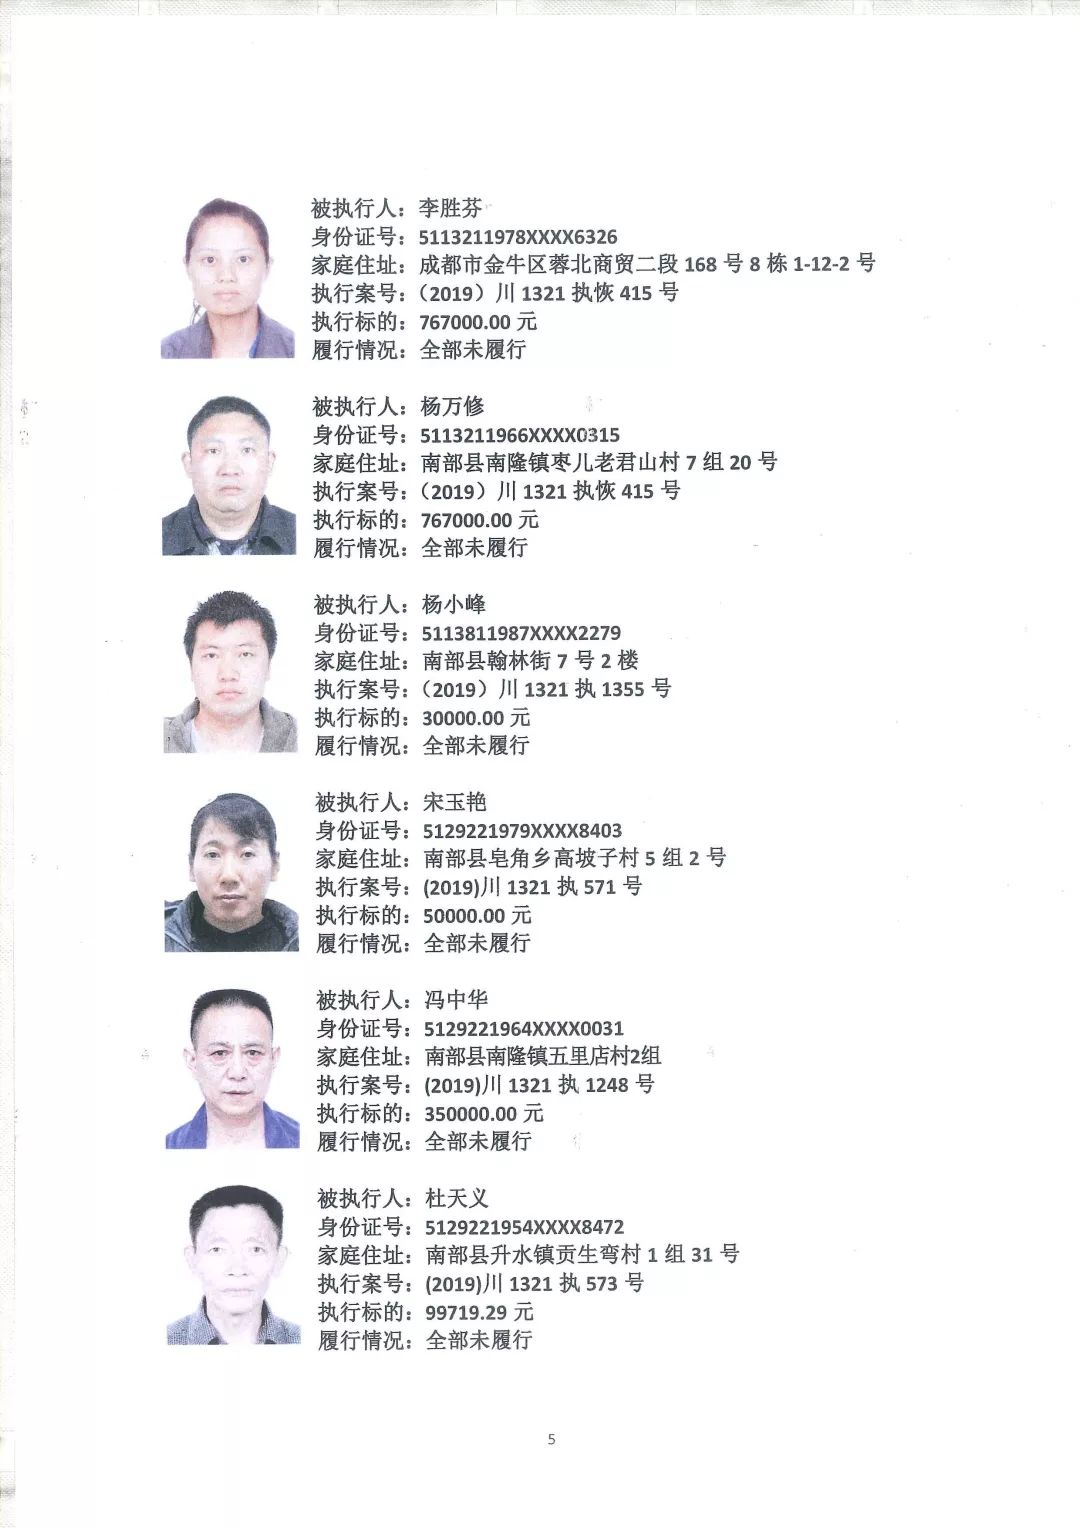 被执行人：李胜芬
身份证号：5113211978XXXX6326
家庭住址：成都市金牛区蓉北商贸二段 168 号 8 栋 1-12-2 号
执行案号：（2019）川 1321 执恢 415 号
执行标的：767000.00 元
履行情况：全部未履行
被执行人：杨万修
身份证号：5113211966XXXX0315
家庭住址：南部县南隆镇枣儿老君山村 7 组 20 号
执行案号：（2019）川 1321 执恢 415 号
执行标的：767000.00 元
履行情况：全部未履行
被执行人：杨小峰
身份证号：5113811987XXXX2279
家庭住址：南部县翰林街 7 号 2 楼
执行案号：（2019）川 1321 执 1355 号
执行标的：30000.00 元
履行情况：全部未履行
被执行人：宋玉艳
身份证号：5129221979XXXX8403
家庭住址：南部县皂角乡高坡子村 5 组 2 号
执行案号：(2019)川 1321 执 571 号
执行标的：50000.00 元
履行情况：全部未履行
被执行人：冯中华
身份证号：5129221964XXXX0031
家庭住址：南部县南隆镇五里店村2组
执行案号：(2019)川 1321 执 1248 号
执行标的：350000.00 元
履行情况：全部未履行
被执行人：杜天义
身份证号：5129221954XXXX8472
家庭住址：南部县升水镇贡生弯村 1 组 31 号
执行案号：(2019)川 1321 执 573 号
执行标的：99719.29 元
履行情况：全部未履行
5